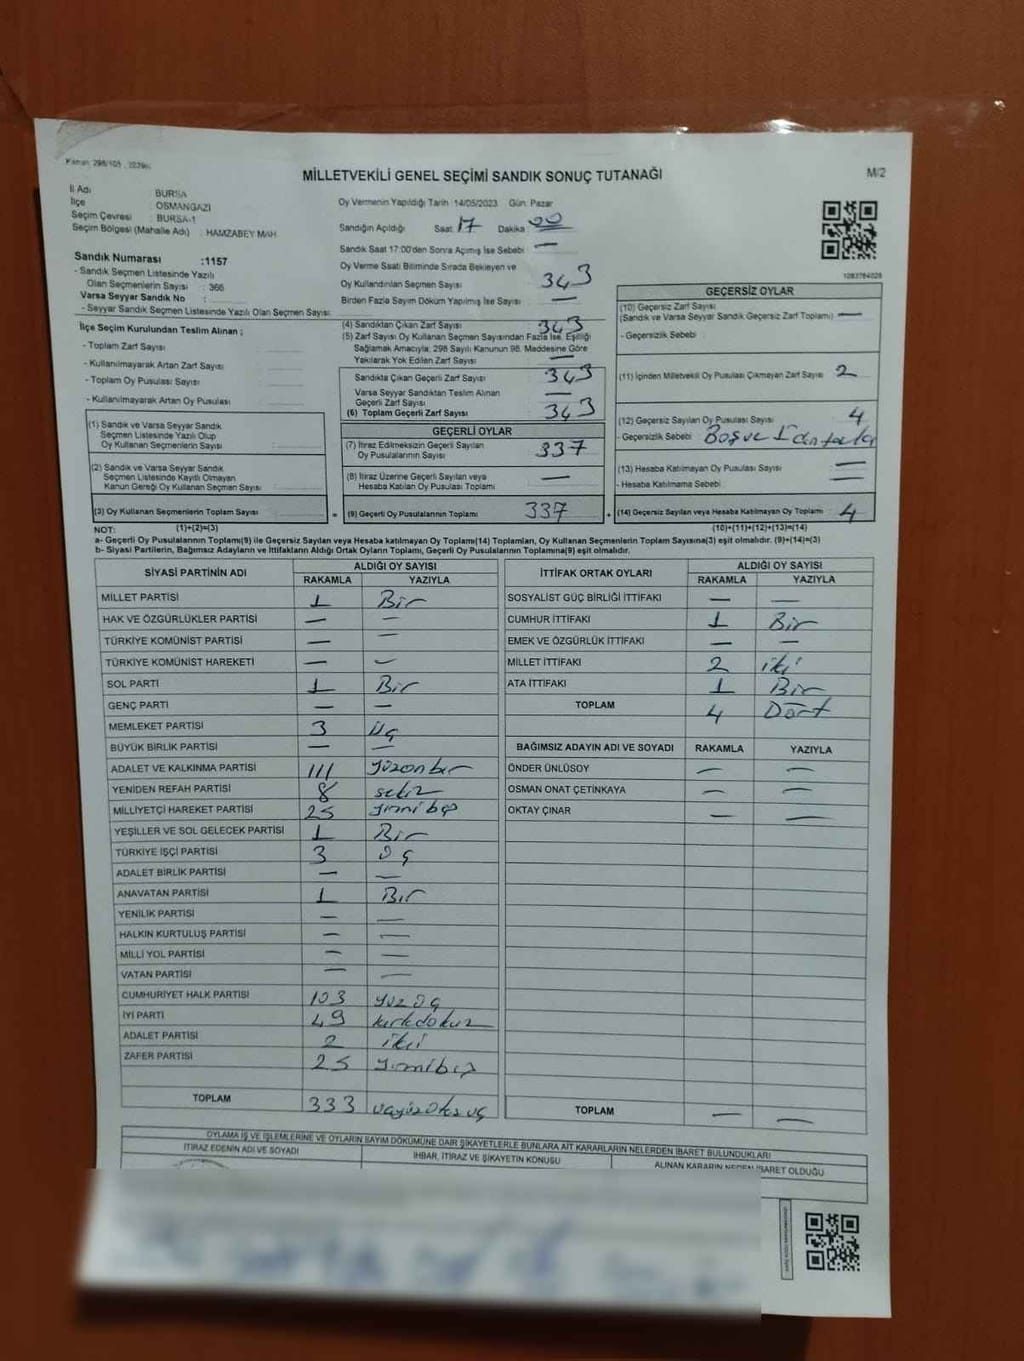 Kanun 298/105
MİLLETVEKİLİ GENEL SEÇİMİ SANDIK SONUÇ TUTANAĞI
M/2
İl Adı BURSA
İlçe OSMANGAZİ
Seçim Çevresi : BURSA-1
Seçim Bölgesi (Mahalle Adı) : HAMZABEY MAH.
Oy Vermenin Yapıldığı Tarih 14/05/2023 Gün: Pazar
Sandığın Açıldığı Saat 17 Dakika 00
Sandık Saat 17:00'den Sonra Açımış İse Sebebi —
Sandık Numarası :1157
- Sandık Seçmen Listesinde Yazılı
Olan Seçmenlerin Sayısı : 366
Varsa Seyyar Sandık No :
- Seyyar Sandık Seçmen Listesinde Yazılı Olan Seçmen Sayısı:
Oy Verme Saati Bitiminde Sırada Bekleyen ve
Oy Kullandırılan Seçmen Sayısı 343
Birden Fazla Sayım Döküm Yapılmış İse Sayısı —
İlçe Seçim Kurulundan Teslim Alınan ;
- Toplam Zarf Sayısı :
- Kullanılmayarak Artan Zarf Sayısı :
- Toplam Oy Pusulası Sayısı :
- Kullanılmayarak Artan Oy Pusulası :
(4) Sandıktan Çıkan Zarf Sayısı 343
(5) Zarf Sayısı Oy Kullanan Seçmen Sayısından Fazla İse, Eşitliği
Sağlamak Amacıyla; 298 Sayılı Kanunun 98. Maddesine Göre
Yakılarak Yok Edilen Zarf Sayısı —
Sandıkta Çıkan Geçerli Zarf Sayısı 343
Varsa Seyyar Sandıktan Teslim Alınan
Geçerli Zarf Sayısı —
(6) Toplam Geçerli Zarf Sayısı 343
(1) Sandık ve Varsa Seyyar Sandık
Seçmen Listesinde Yazılı Olup
Oy Kullanan Seçmenlerin Sayısı :
(2) Sandık ve Varsa Seyyar Sandık
Seçmen Listesinde Kayıtlı Olmayan
Kanun Gereği Oy Kullanan Seçmen Sayısı :
(3) Oy Kullanan Seçmenlerin Toplam Sayısı :
(1)+(2)=(3)
GEÇERLİ OYLAR
(7) İtiraz Edilmeksizin Geçerli Sayılan
Oy Pusulalarının Sayısı 337
(8) İtiraz Üzerine Geçerli Sayılan veya
Hesaba Katılan Oy Pusulası Toplamı —
= (9) Geçerli Oy Pusulalarının Toplamı 337
GEÇERSİZ OYLAR
(10) Geçersiz Zarf Sayısı
(Sandık ve Varsa Seyyar Sandık Geçersiz Zarf Toplamı) —
- Geçersizlik Sebebi :
(11) İçinden Milletvekili Oy Pusulası Çıkmayan Zarf Sayısı 2
(12) Geçersiz Sayılan Oy Pusulası Sayısı 4
- Geçersizlik Sebebi Boş ve 1 den fazla
(13) Hesaba Katılmayan Oy Pusulası Sayısı —
- Hesaba Katılmama Sebebi —
+ (14) Geçersiz Sayılan veya Hesaba Katılmayan Oy Toplamı 4
(10)+(11)+(12)+(13)=(14)
NOT:
a- Geçerli Oy Pusulalarının Toplamı(9) ile Geçersiz Sayılan veya Hesaba Katılmayan Oy Toplamı(14) Toplamları, Oy Kullanan Seçmenlerin Toplam Sayısına(3) eşit olmalıdır. (9)+(14)=(3)
b- Siyasi Partilerin, Bağımsız Adayların ve İttifakların Aldığı Ortak Oyların Toplamı, Geçerli Oy Pusulalarının Toplamına(9) eşit olmalıdır.
SİYASİ PARTİNİN ADI ALDIĞI OY SAYISI
RAKAMLA YAZIYLA
MİLLET PARTİSİ 1 Bir
HAK VE ÖZGÜRLÜKLER PARTİSİ — —
TÜRKİYE KOMÜNİST PARTİSİ — —
TÜRKİYE KOMÜNİST HAREKETİ — —
SOL PARTİ 1 Bir
GENÇ PARTİ — —
MEMLEKET PARTİSİ 3 üç
BÜYÜK BİRLİK PARTİSİ — —
ADALET VE KALKINMA PARTİSİ 111 yüzonbir
YENİDEN REFAH PARTİSİ 8 sekiz
MİLLİYETÇİ HAREKET PARTİSİ 25 yirmibeş
YEŞİLLER VE SOL GELECEK PARTİSİ 1 Bir
TÜRKİYE İŞÇİ PARTİSİ 3 üç
ADALET BİRLİK PARTİSİ — —
ANAVATAN PARTİSİ 1 Bir
YENİLİK PARTİSİ — —
HALKIN KURTULUŞ PARTİSİ — —
MİLLİ YOL PARTİSİ — —
VATAN PARTİSİ — —
CUMHURİYET HALK PARTİSİ 103 yüz üç
İYİ PARTİ 49 kırkdokuz
ADALET PARTİSİ 2 iki
ZAFER PARTİSİ 25 yirmibeş
TOPLAM 333 üçyüzotuzüç
İTTİFAK ORTAK OYLARI ALDIĞI OY SAYISI
RAKAMLA YAZIYLA
SOSYALİST GÜÇ BİRLİĞİ İTTİFAKI — —
CUMHUR İTTİFAKI 1 Bir
EMEK VE ÖZGÜRLÜK İTTİFAKI — —
MİLLET İTTİFAKI 2 iki
ATA İTTİFAKI 1 Bir
TOPLAM 4 Dört
BAĞIMSIZ ADAYIN ADI VE SOYADI RAKAMLA YAZIYLA
ÖNDER ÜNLÜSOY — —
OSMAN ONAT ÇETİNKAYA — —
OKTAY ÇINAR — —
TOPLAM — —
OYLAMA İŞ VE İŞLEMLERİNE VE OYLARIN SAYIM DÖKÜMÜNE DAİR ŞİKAYETLERLE BUNLARA AİT KARARLARIN NELERDEN İBARET BULUNDUKLARI
İTİRAZ EDENİN ADI VE SOYADI İHBAR, İTİRAZ VE ŞİKAYETİN KONUSU ALINAN KARARIN NEDEN İBARET OLDUĞU